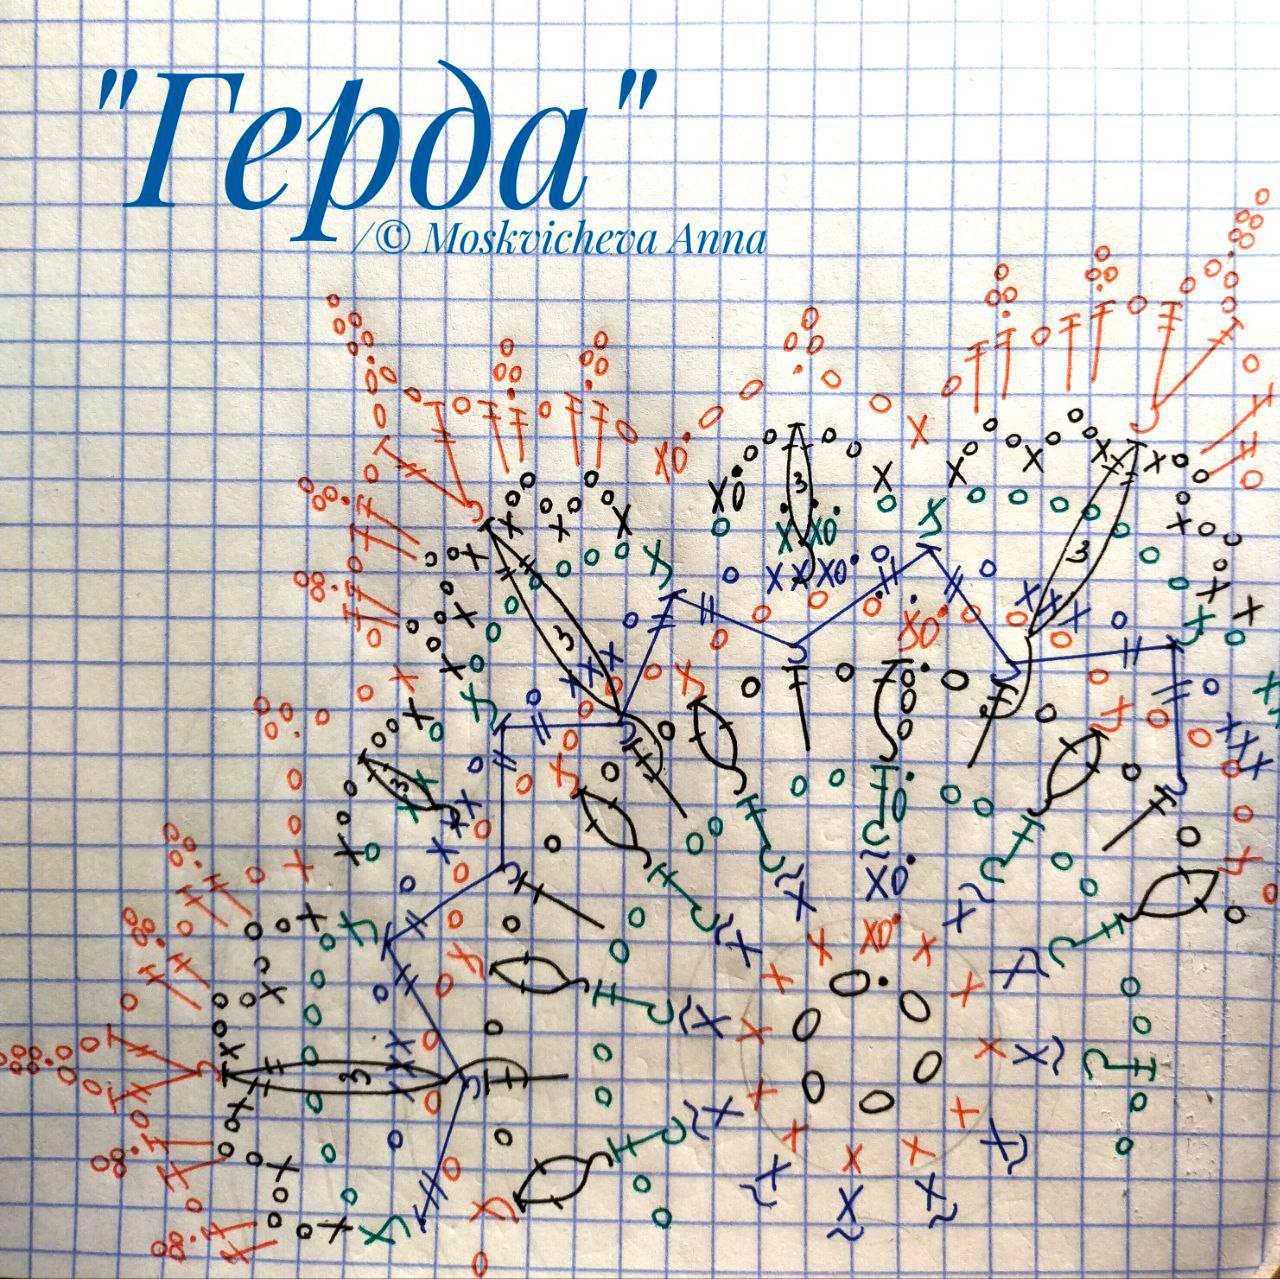 "Герда"
/© Moskvicheva Anna
3
3
3
3
3